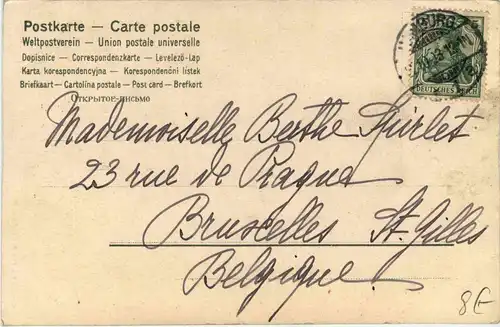 Postkarte — Carte postale
Weltpostverein — Union postale universelle
Dopisnice — Correspondenzkarte — Levelező-Lap
Karta korespondencyjna — Korespondenční lístek
Briefkaart — Cartolina postale — Post card — Brefkort
Открытое-письмо
DEUTSCHES REICH
Mademoiselle Berthe Spurlet
23 rue de Prague
Bruxelles St. Gilles
Belgique
8€